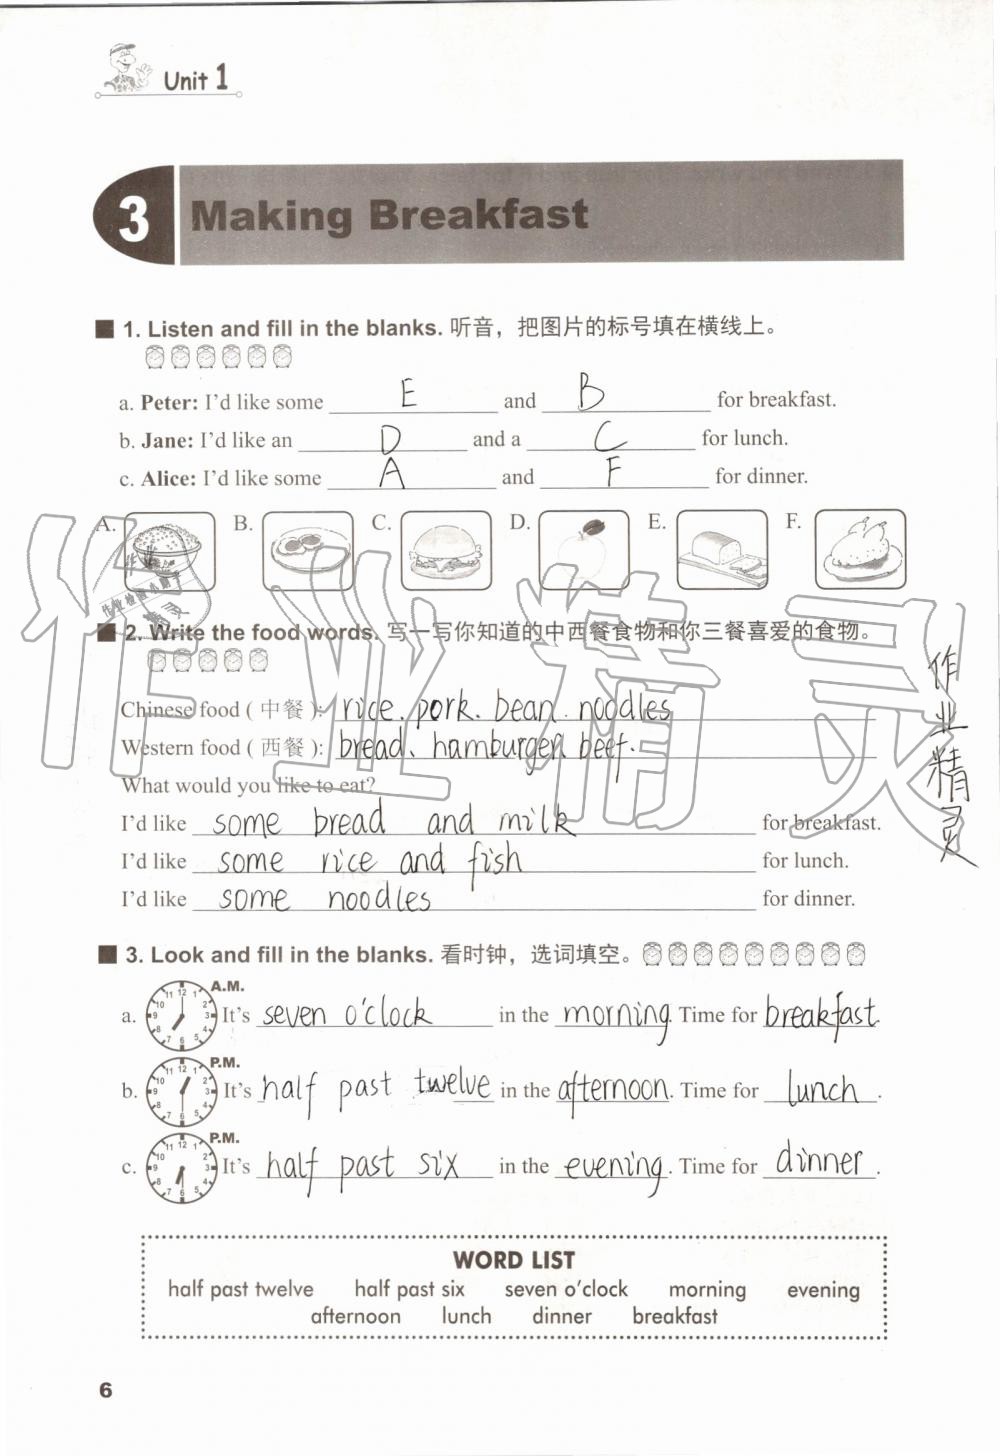 Unit 1
3 Making Breakfast
1. Listen and fill in the blanks. 听音，把图片的标号填在横线上。
a. Peter: I'd like some E and B for breakfast.
b. Jane: I'd like an D and a C for lunch.
c. Alice: I'd like some A and F for dinner.
A. B. C. D. E. F.
作业精灵
2. Write the food words. 写一写你知道的中西餐食物和你三餐喜爱的食物。
Chinese food ( 中餐 ): rice、pork、bean、noodles
Western food ( 西餐 ): bread、hamburger、beef.
What would you like to eat?
I'd like some bread and milk for breakfast.
I'd like some rice and fish for lunch.
I'd like some noodles for dinner.
作业精灵
3. Look and fill in the blanks. 看时钟，选词填空。
A.M.
a. It's seven o'clock in the morning. Time for breakfast.
P.M.
b. It's half past twelve in the afternoon. Time for lunch.
P.M.
c. It's half past six in the evening. Time for dinner.
WORD LIST
half past twelve half past six seven o'clock morning evening
afternoon lunch dinner breakfast
6